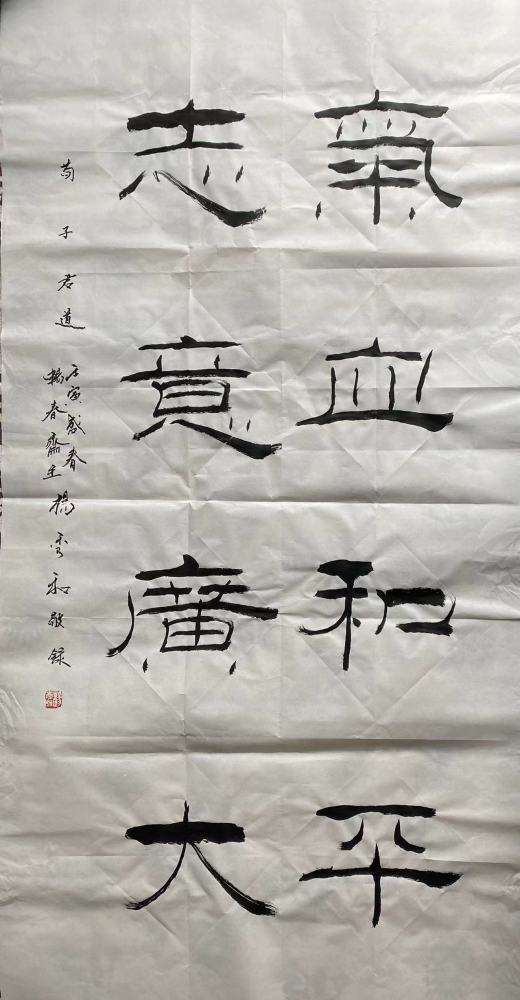 氣血和平
志意廣大
荀子君道
壬寅盛春
春齋主
楊
和敬録